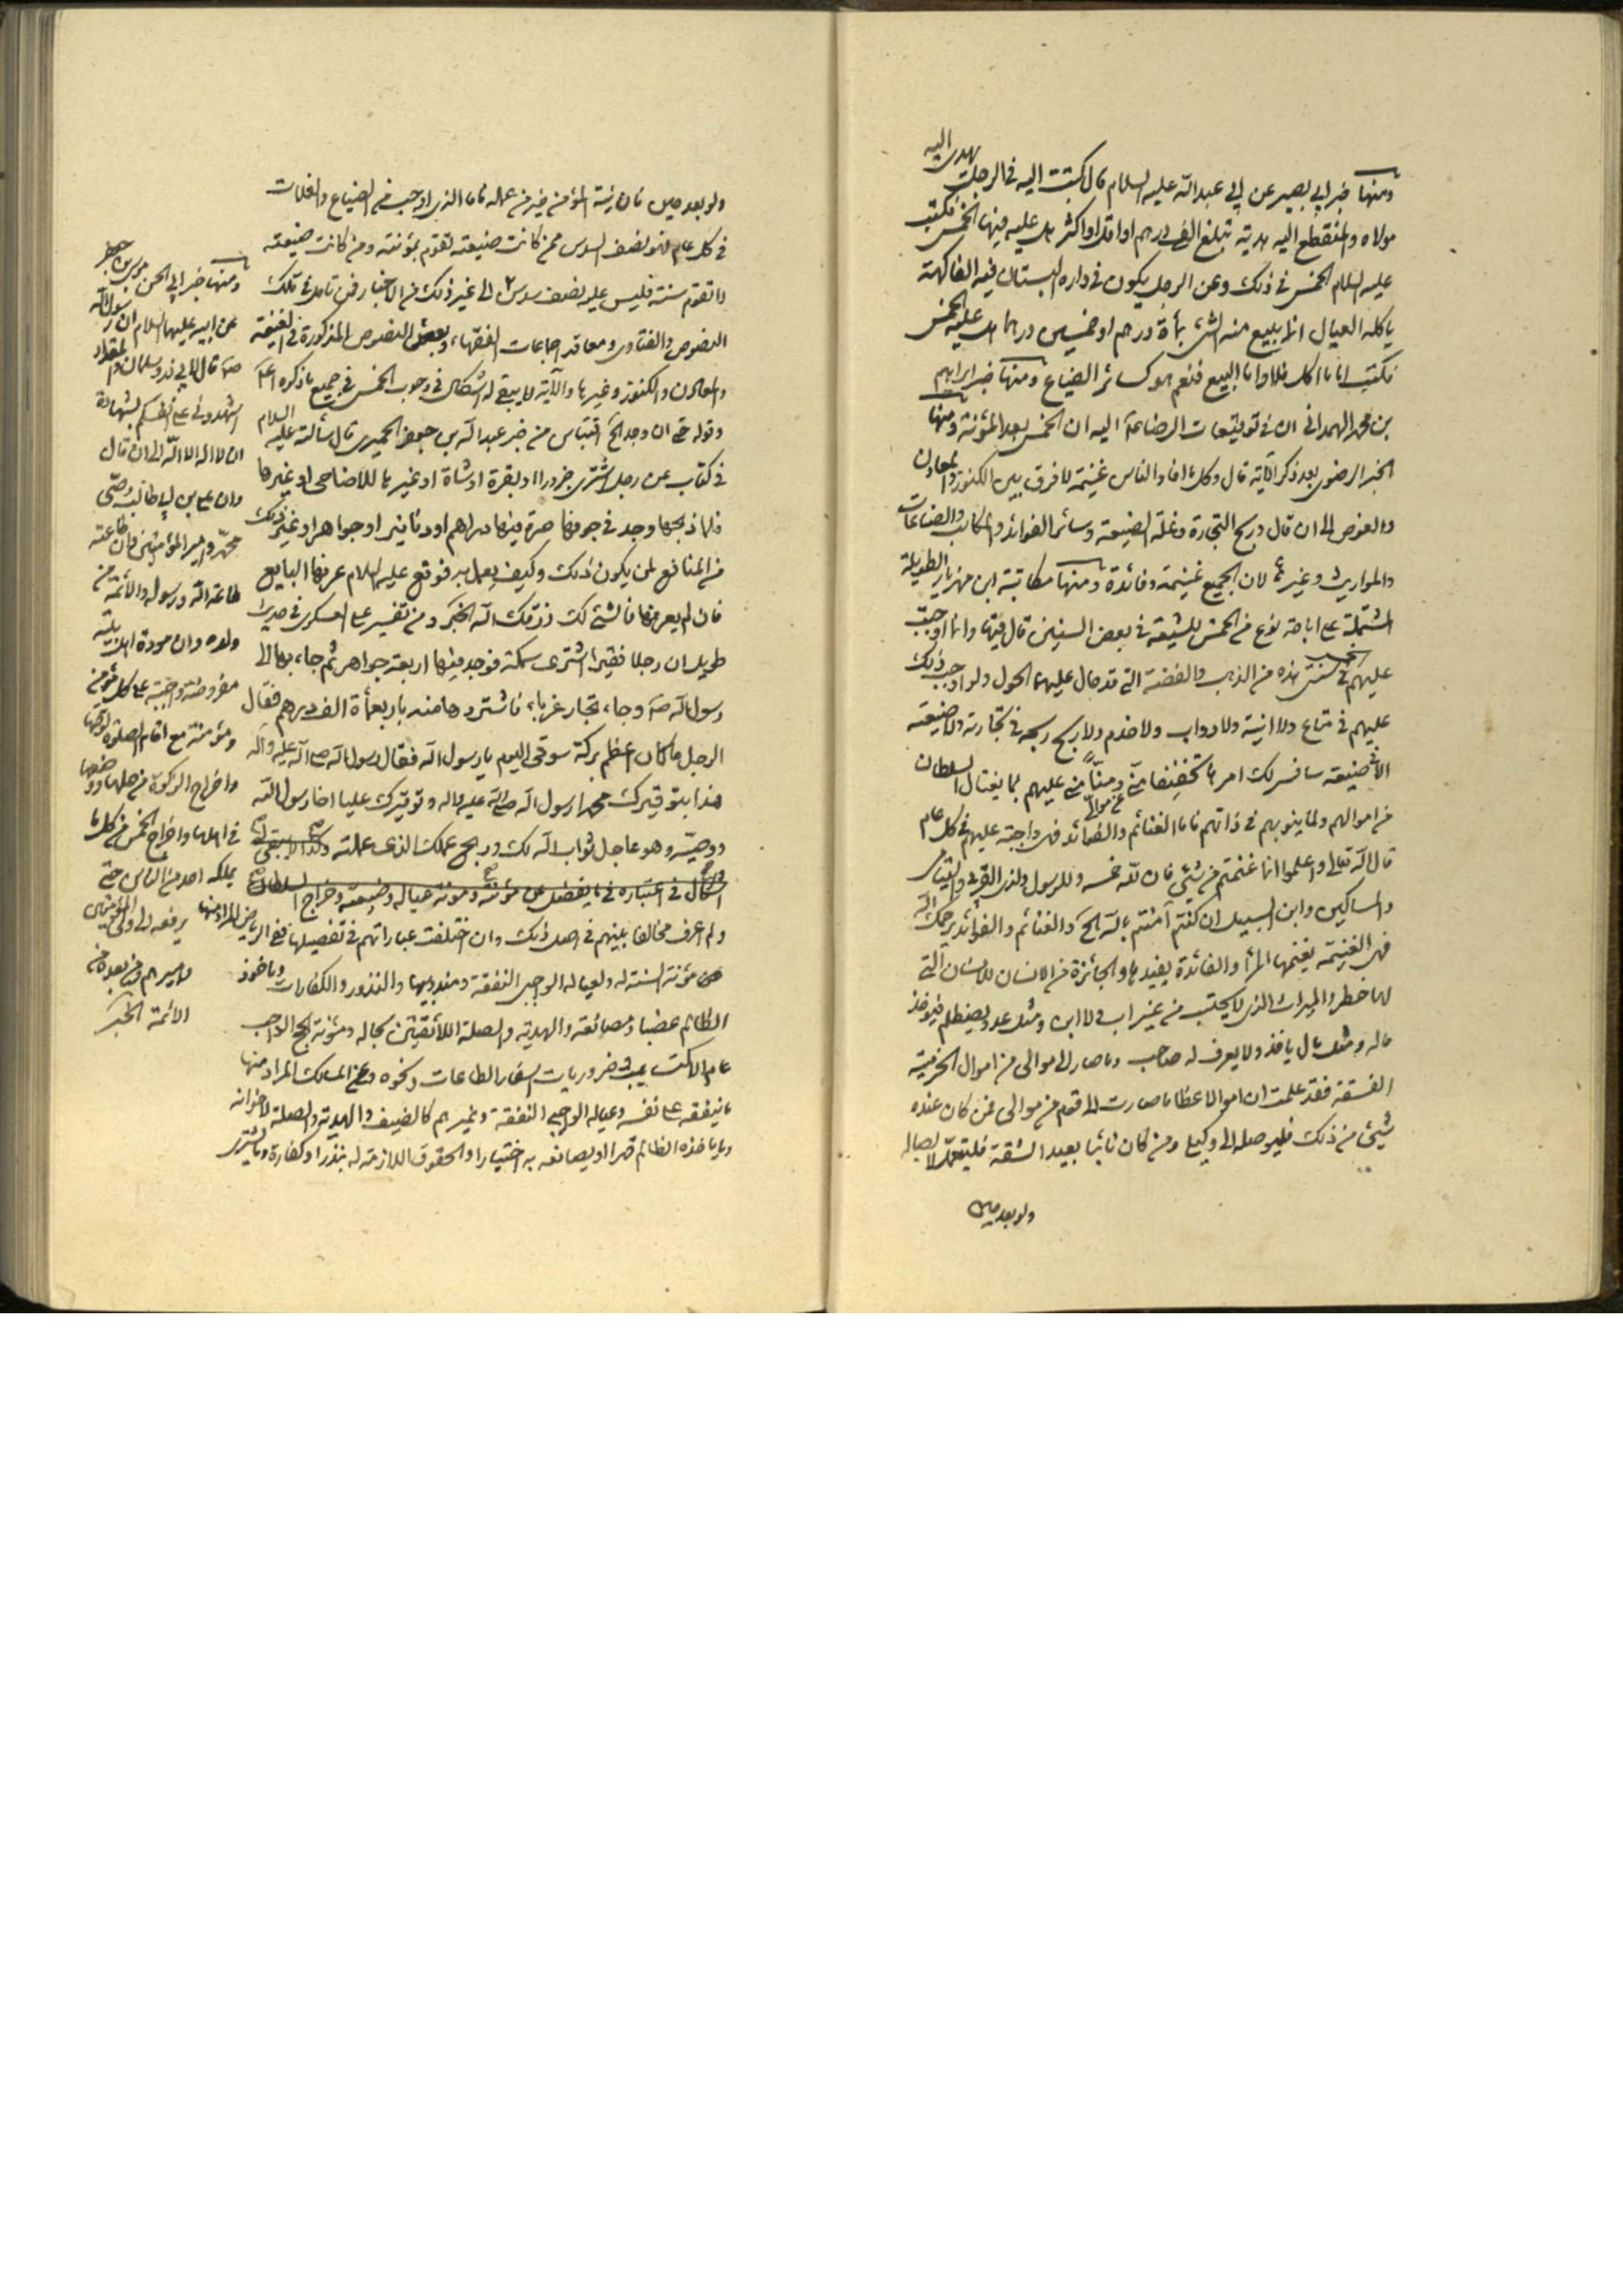 ومنها خبر ابي بصير عن ابي عبدالله عليه السلام قال كتبت اليه في الرجل يهدى اليه
مولاه والمنقطع اليه هدية تبلغ الفى درهم او اقل او اكثر هل عليه فيها الخمس فكتب
عليه السلام الخمس في ذلك وعن الرجل يكون في داره البستان فيه الفاكهة
ياكله العيال انما يبيع منه الشئ بمأة درهم او خمسين درهما هل عليه الخمس
فكتب اما ما اكل فلا واما البيع فنعم هو كسائر الضياع ومنها خبر ابراهيم
بن محمد الهمداني ان في توقيعات الرضا ع اليه ان الخمس بعد المؤنة ومنها
الخبر الرضوى بعد ذكر الآية قال وكل ما افاد الناس غنيمة لا فرق بين الكنوز والمعادن
والغوص الى ان قال وربح التجارة وغلة الضيعة وسائر الفوائد والمكاسب والصناعات
والمواريث وغيرها لان الجميع غنيمة وفائدة ومنها مكاتبة ابن مهزيار الطويلة
المشتملة على اباحة نوع من الخمس للشيعة في بعض السنين قال فيها وانما اوجبت
عليهم الخمس في سنتى هذه من الذهب والفضة التي قد حال عليهما الحول ولم اوجب ذلك
عليهم في متاع ولا انية ولا دواب ولا خدم ولا ربح ربحه في تجارته ولا ضيعة
الا في ضيعة سافسر لك امرها تخفيفا منّي عن موالى ومنّا منى عليهم بما يغتال السلطان
من اموالهم ولما ينوبهم في ذاتهم فاما الغنائم والفوائد فهى واجبة عليهم في كل عام
قال الله تعالى واعلموا انما غنمتم من شئ فان لله خمسه وللرسول ولذى القربى واليتامى
والمساكين وابن السبيل ان كنتم آمنتم بالله الخ والغنائم والفوائد يرحمك الله
فهى الغنيمة يغنمها المرأ والفائدة يفيدها والجائزة من الانسان للانسان التى
لها خطر والميراث الذى لا يحتسب من غير اب ولا ابن ومثل عدو يصطلم فيؤخذ
ماله ومثل مال ياخذ ولا يعرف له صاحب وما صار الى موالى من اموال الخرمية
الفسقة فقد علمت ان اموالا عظاما صارت الى قوم من موالى فمن كان عنده
شئ من ذلك فليوصله الى وكيلى ومن كان نائيا بعيد الشقة فليتعمد لايصاله
ولو بعد حين
ولو بعد حين فان نية المؤمن خير من عمله فاما الذى اوجب في الضياع والغلات
في كل عام فهو نصف السدس ممن كانت ضيعته تقوم بمؤنته ومن كانت ضيعته
لا تقوم بمؤنته فليس عليه نصف سدس الى غير ذلك من الاخبار فمن تامل في تلك
النصوص والفتاوى ومعاقد اجماعات الفقهاء وبعض النصوص المذكورة في الغنيمة
والمعادن والكنوز وغيرها والآية لا يبقى له اشكال في وجوب الخمس في جميع ما ذكره
وقوله حتى ان وجد الخ اقتباس من خبر عبدالله بن جعفر الحميرى قال سألته عليه السلام
في كتاب عن رجل اشترى جزورا او بقرة او شاة او غيرها للاضاحى او غيرها
فلما ذبحها وجد في جوفها صرة فيها دراهم او دنانير او جواهر او غير ذلك
من المنافع لمن يكون ذلك وكيف يعمل به فوقع عليه السلام عرفها البايع
فان لم يعرفها فالشئ لك رزقك الله الخبر ومن تفسير العسكرى في حديث
طويل ان رجلا فقيرا اشترى سمكة فوجد فيها اربعة جواهر ثم جاء بها الى
رسول الله ص وجاء تجار غرباء فاشتروها منه باربعمأة الف درهم فقال
الرجل ما كان اعظم بركة سوقى اليوم يا رسول الله فقال رسول الله صلى الله عليه وآله
هذا بتوقيرك محمدا رسول الله صلى الله عليه وآله وتوقيرك عليا اخا رسول الله
ووصيه وهو عاجل ثواب الله لك وربح عملك الذى عملته وكذا لا يبقى
اشكال في اعتباره في ما يفضل عن مؤنته ومؤنة عياله وضيعته وخراج السلطان
ولم اعرف مخالفا بينهم في اصل ذلك وان اختلفت عباراتهم في تفصيلها ففي الرياض المراد منها
مؤنة السنة له ولعياله الواجبى النفقة ومندوبيها والنذور والكفارات وماخوذ
الظالم غصبا ومصانعة والهدية والصلة اللائقتين بحاله ومؤنة الحج الواجب
عام الاكتساب وضروريات اسفار الطاعات ونحوه وعن المسالك المراد منها
ما ينفقه على نفسه وعياله الواجبى النفقة وغيرهم كالضيف والهدية والصلة لاخوانه
وما ياخذه الظالم قهرا او يصانعه به اختيارا والحقوق اللازمة له بنذر او كفارة وما يشترى
ومنها خبر ابي الحسن موسى بن جعفر
عن ابيه عليهما السلام ان رسول الله
ص قال لابي ذر وسلمان والمقداد
اشهدوني على انفسكم بشهادة
ان لا اله الا الله الى ان قال
وان على بن ابي طالب وصى
محمد وامير المؤمنين وان طاعته
طاعة الله ورسوله والائمة من
ولده وان مودة اهل بيته
مفروضة واجبة على كل مؤمن
ومؤمنة مع اقام الصلوة لوقتها
واخراج الزكوة من حلها ووضعها
في اهلها واخراج الخمس من كل ما
يملكه احد من الناس حتى
يرفعه الى ولى المؤمنين
واميرهم ومن بعده من
الائمة الخبر